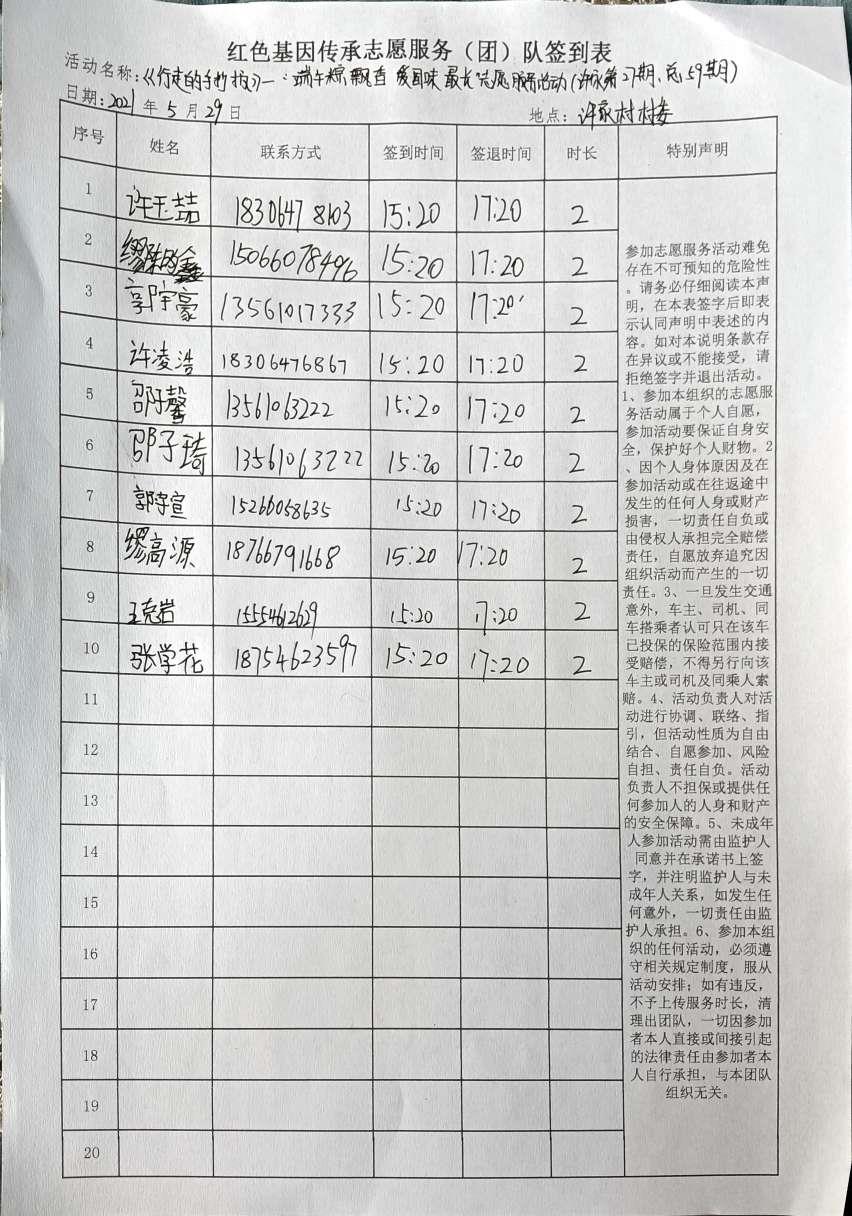 红色基因传承志愿服务（团）队签到表
活动名称：《行走的手抄报》—：端午粽飘香 爱回味最长志愿服务活动（许家第27期、总59期）
日期：2021年5月29日 地点：许家村村委
序号 姓名 联系方式 签到时间 签退时间 时长 特别声明
1 许玉喆 18306478103 15:20 17:20 2
2 缪 15066078496 15:20 17:20 2
3 郭宇豪 13561017333 15:20 17:20 2
4 许凌浩 18306476867 15:20 17:20 2
5 邵馨 13561063222 15:20 17:20 2
6 邵子琦 13561063222 15:20 17:20 2
7 郭宇宣 15266058635 15:20 17:20 2
8 缪高源 18766791668 15:20 17:20 2
9 王克岩 15554612629 15:20 17:20 2
10 张学花 18754623597 15:20 17:20 2
11
12
13
14
15
16
17
18
19
20
参加志愿服务活动难免
存在不可预知的危险性
。请务必仔细阅读本声
明，在本表签字后即表
示认同声明中表述的内
容。如对本说明条款存
在异议或不能接受，请
拒绝签字并退出活动。
1、参加本组织的志愿服
务活动属于个人自愿，
参加活动要保证自身安
全，保护好个人财物。2
、因个人身体原因及在
参加活动或在往返途中
发生的任何人身或财产
损害，一切责任自负或
由侵权人承担完全赔偿
责任，自愿放弃追究因
组织活动而产生的一切
责任。3、一旦发生交通
意外，车主、司机、同
车搭乘者认可只在该车
已投保的保险范围内接
受赔偿，不得另行向该
车主或司机及同乘人索
赔。4、活动负责人对活
动进行协调、联络、指
引，但活动性质为自由
结合、自愿参加、风险
自担、责任自负。活动
负责人不担保或提供任
何参加人的人身和财产
的安全保障。5、未成年
人参加活动需由监护人
同意并在承诺书上签
字，并注明监护人与未
成年人关系，如发生任
何意外，一切责任由监
护人承担。6、参加本组
织的任何活动，必须遵
守相关规定制度，服从
活动安排；如有违反，
不予上传服务时长，清
理出团队，一切因参加
者本人直接或间接引起
的法律责任由参加者本
人自行承担，与本团队
组织无关。